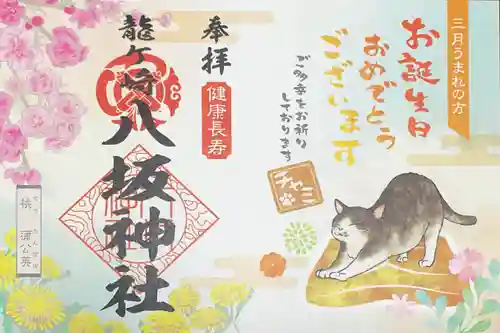 三月うまれの方
お誕生日
おめでとう
ございます
ご多幸をお祈り
しております
チャミ
奉拝
健康長寿
龍ケ崎
八坂神社
桃
蒲公英